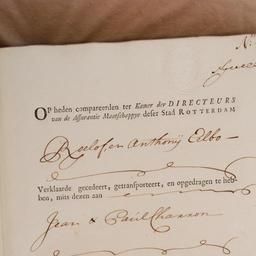 Op heden compareerden ter Kamer der DIRECTEURS
van de Assurantie Maatschappye deser Stad ROTTERDAM
Roelof en Anthonij Elbo
Verklaarde gecedeert, getransporteert, en opgedragen te heb-
ben, mits dezen aan
Jean & Paul Charron